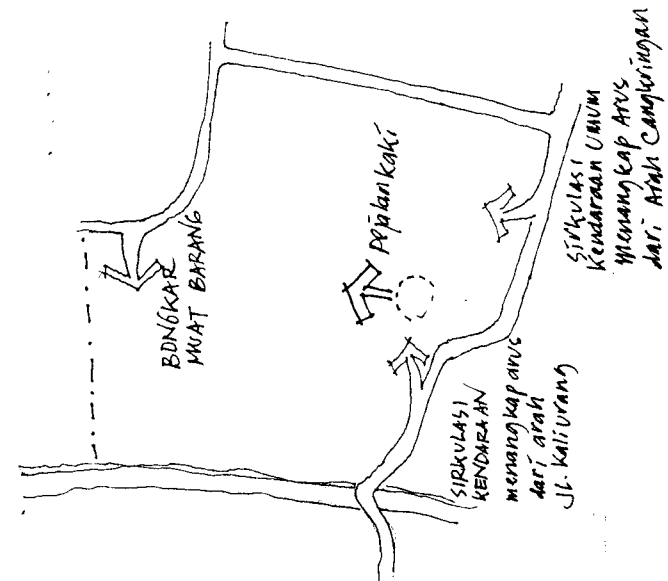 BONGKAR
MUAT BARANG
pejalan kaki
SIRKULASI
KENDARAAN
menangkap arus
dari arah
JL. Kaliurang
SIRKULASI
Kendaraan UMUM
menangkap Arus
dari Arah Cangkringan